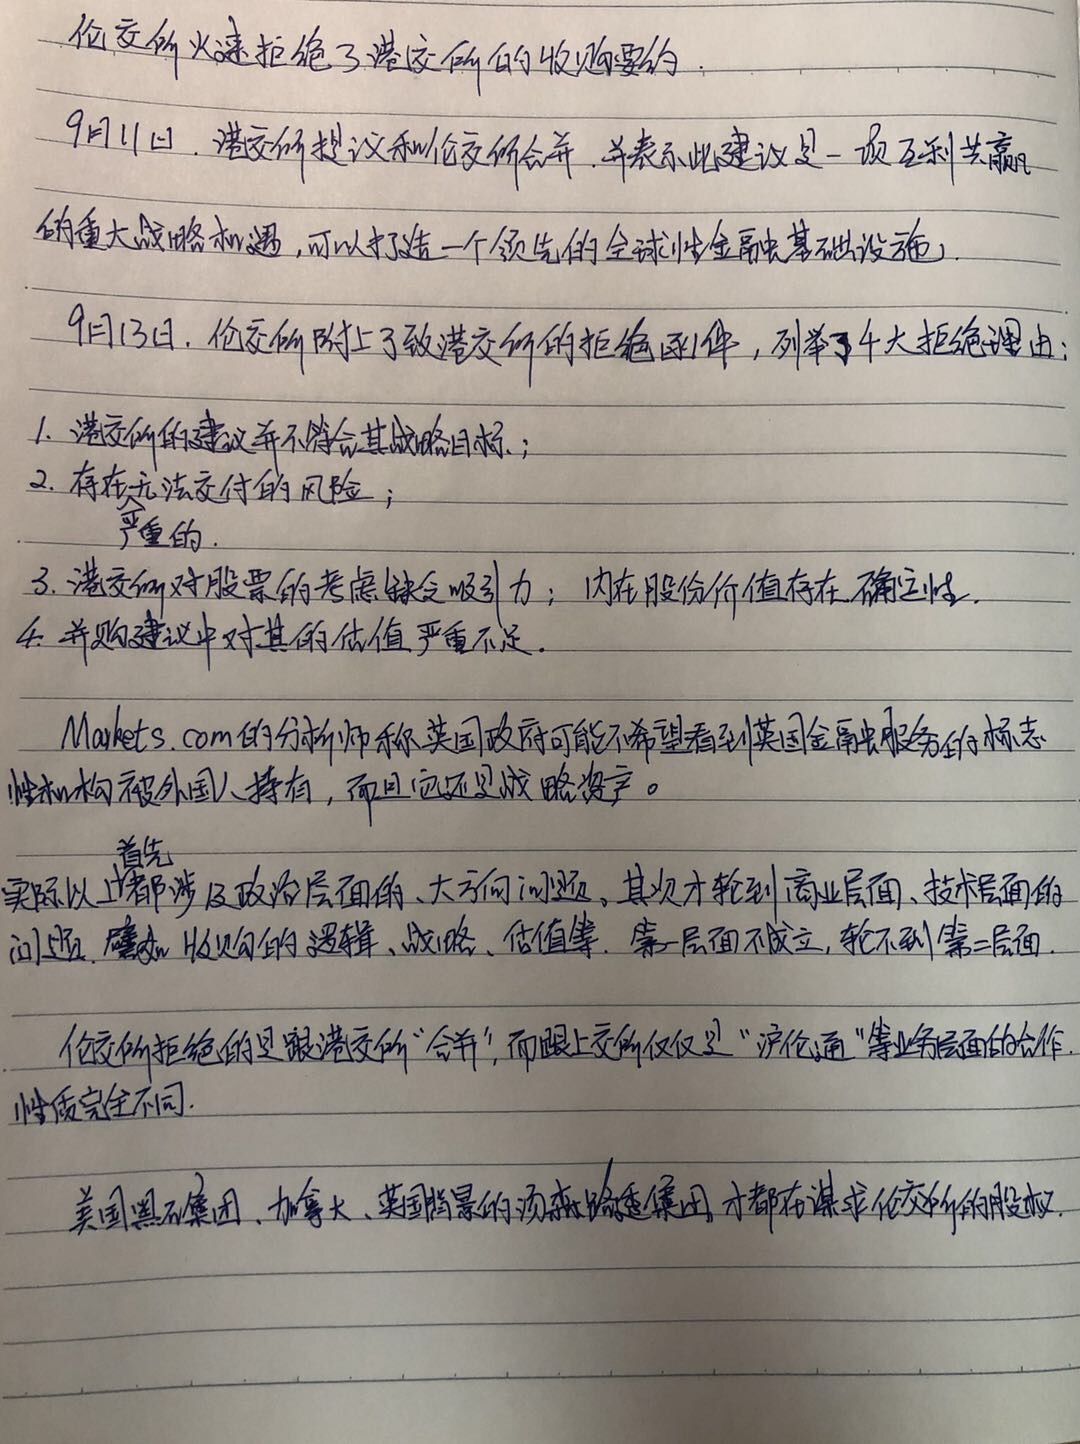 伦交所火速拒绝了港交所的收购要约.
9月11日.港交所提议和伦交所合并.并表示此建议是一项互利共赢
的重大战略机遇,可以打造一个领先的全球性金融基础设施,
9月13日.伦交所附上了致港交所的拒绝函件,列举了4大拒绝理由:
1.港交所的建议并不符合其战略目标.;
2.存在无法交付的风险;
严重的.
3.港交所对股票的考虑缺乏吸引力;内在股份价值存在确定性.
4.并购建议中对其的估值严重不足.
Markets.com的分析师称英国政府可能不希望看到英国金融服务的标志
性机构被外国人持有,而且它还是战略资产。
首先
实际以上都涉及政治层面的、大方向问题。其次才轮到商业层面、技术层面的
问题.收购的逻辑、战略、估值等.第一层面不成立,轮不到第二层面.
伦交所拒绝的是跟港交所"合并",而跟上交所仅仅是"沪伦通"等业务层面的合作.
性质完全不同.
美国黑石集团、加拿大、英国背景的汤森路透集团,才都在谋求伦交所的股权.